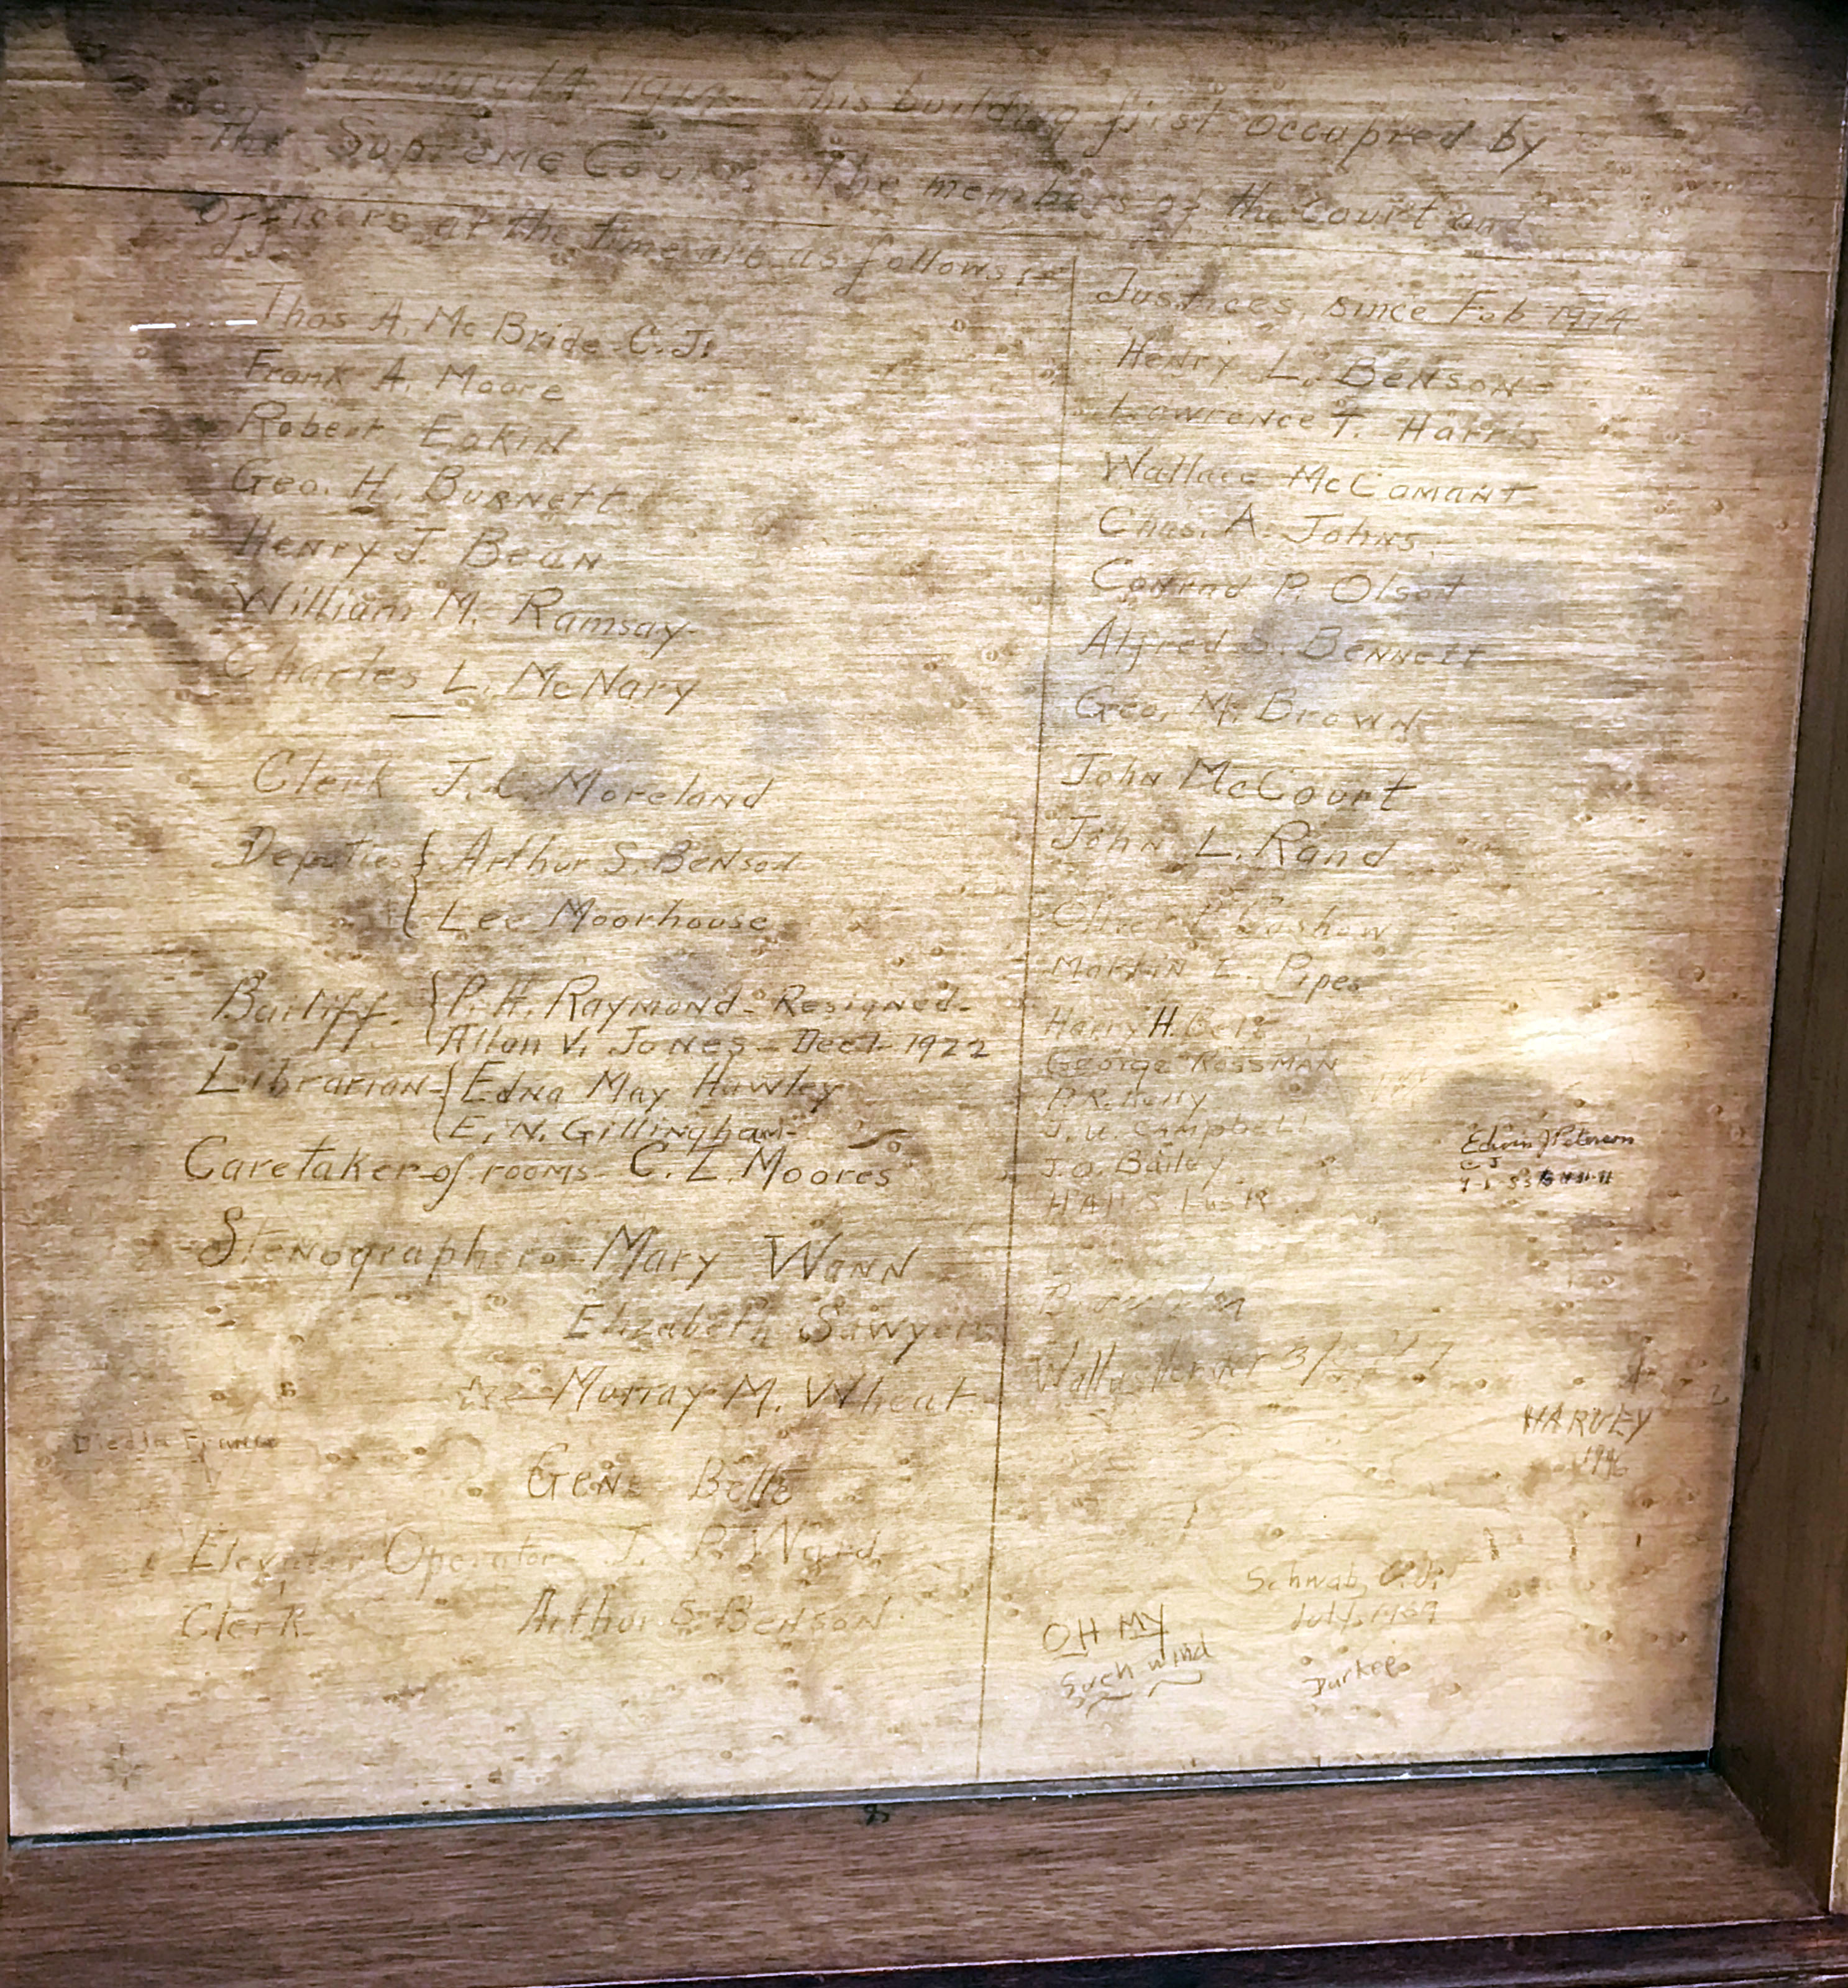 1914 This building first occupied by
The Supreme Court. The members of the Court and
Officers at the time are as follows:-
Thos A. McBride C.J.
Frank A. Moore
Robert Eakin
Geo. H. Burnett
Henry J. Bean
William M. Ramsay
Charles L. McNary
Clerk J. C. Moreland
Deputies { Arthur S. Benson
Lee Moorhouse
Bailiff. { P. H. Raymond - Resigned -
Allan V. Jones - Dec 1 - 1922
Librarian { Edna May Hawley
E. N. Gillingham -
Caretaker of rooms - C. L. Moores
Stenographers - Mary Wann
Elizabeth Sawyers
Murray M. Wheat
Died in France
Gene Belts
Elevator Operator J. P. Ward.
Clerk Arthur S. Benson
Justices, since Feb 1914
Henry L. Benson
Lawrence T. Harris
Wallace McCamant
Chas. A. Johns.
Conrad P. Olson
Alfred S. Bennett
Geo. M. Brown
John McCourt
John L. Rand
Oliver P. Coshow
Martin L. Pipes
Harry H. Belt
George Rossman
P. R. Kelly
J. U. Campbell
J. O. Bailey
Hall S Lusk
Edwin J Peterson
C J
HARVEY
1996
Schwab, C.J.
July,
OH MY
Such wind
Durkee